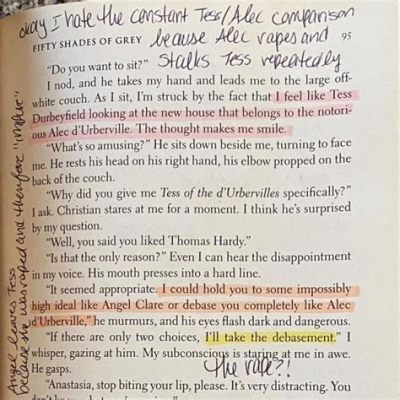 okay I hate the constant Tess/Alec comparison
because Alec rapes and
stalks Tess repeatedly
FIFTY SHADES OF GREY 95
"Do you want to sit?"
I nod, and he takes my hand and leads me to the large off-
white couch. As I sit, I'm struck by the fact that I feel like Tess
Durbeyfield looking at the new house that belongs to the notori-
ous Alec d'Urberville. The thought makes me smile.
"What's so amusing?" He sits down beside me, turning to face
me. He rests his head on his right hand, his elbow propped on the
back of the couch.
"Why did you give me Tess of the d'Urbervilles specifically?"
I ask. Christian stares at me for a moment. I think he's surprised
by my question.
"Well, you said you liked Thomas Hardy."
"Is that the only reason?" Even I can hear the disappointment
in my voice. His mouth presses into a hard line.
"It seemed appropriate. I could hold you to some impossibly
high ideal like Angel Clare or debase you completely like Alec
d'Urberville," he murmurs, and his eyes flash dark and dangerous.
"If there are only two choices, I'll take the debasement." I
whisper, gazing at him. My subconscious is staring at me in awe.
He gasps.
the rape?!
"Anastasia, stop biting your lip, please. It's very distracting. You
Angel leaves Tess
because she was raped and therefore "impure"